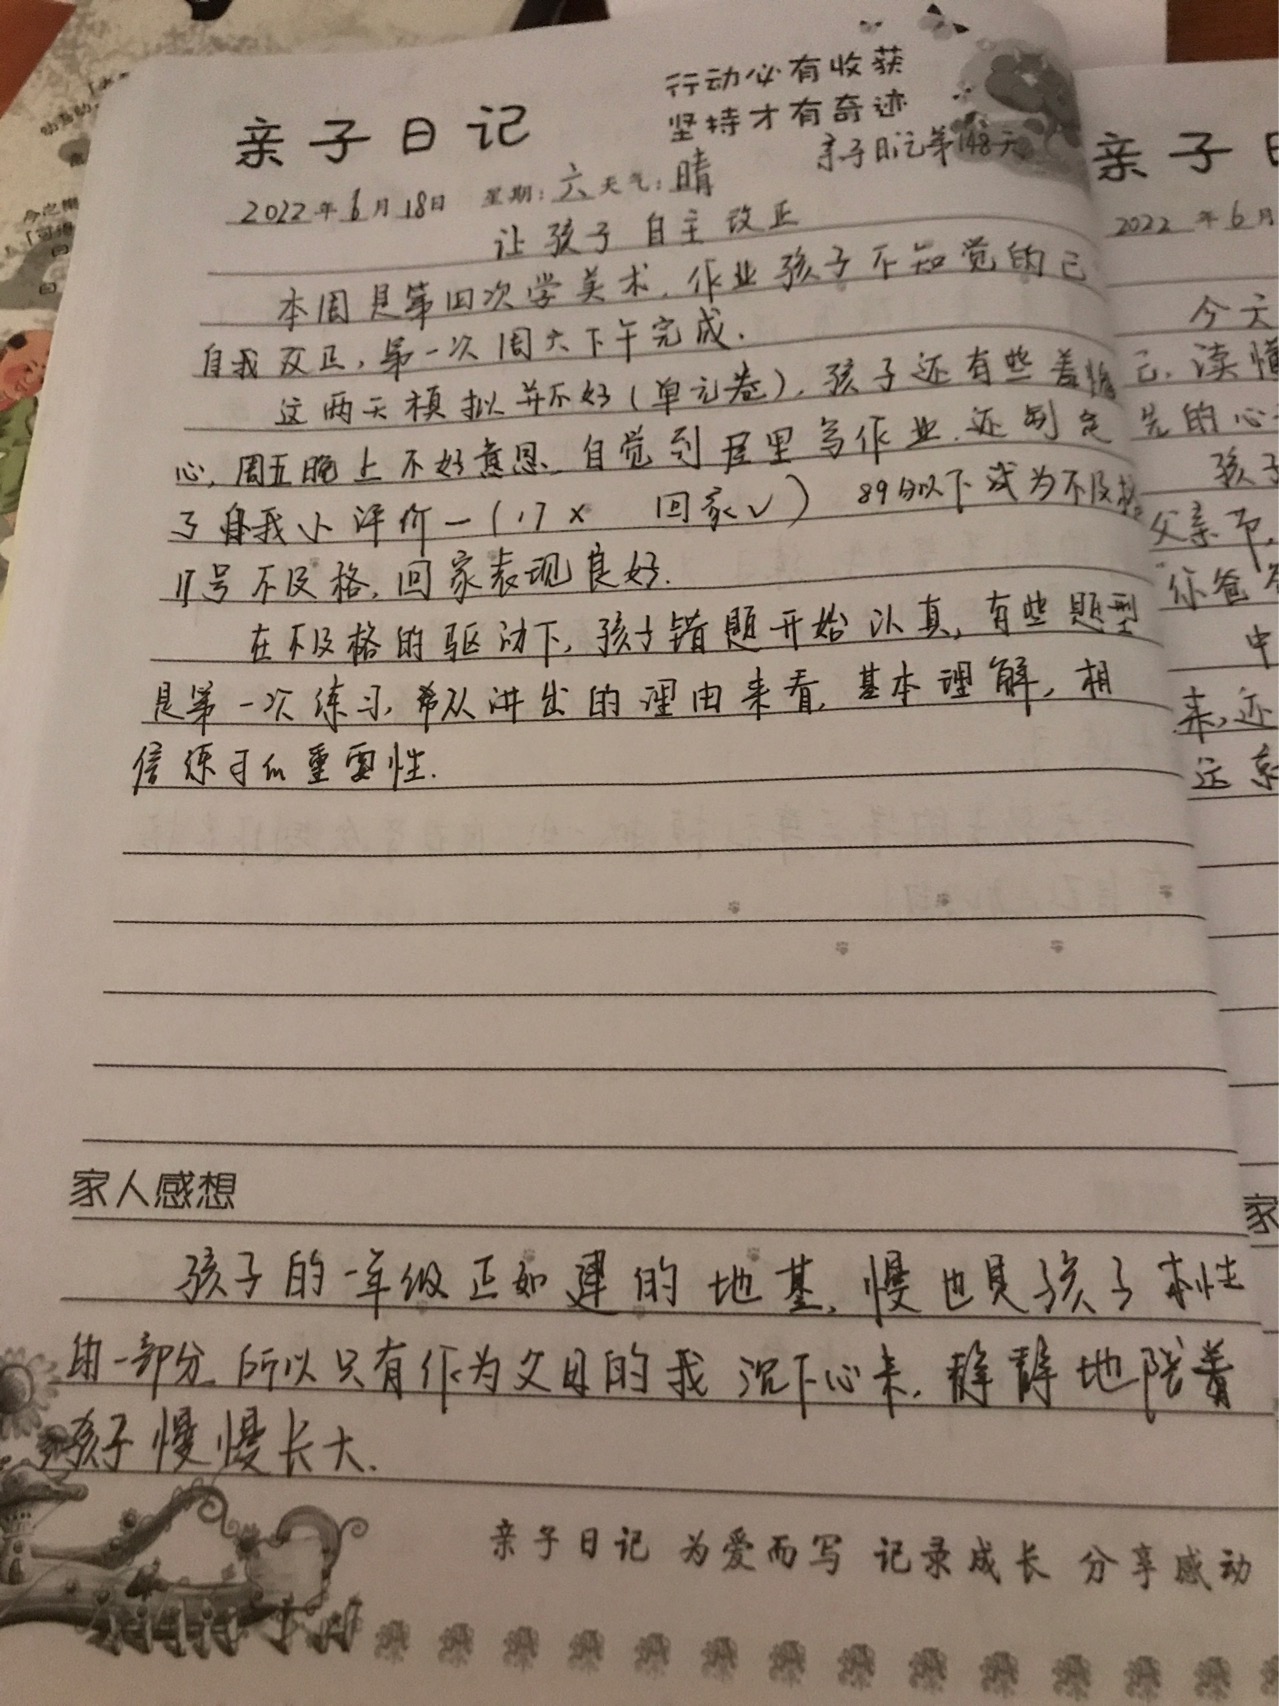 亲子日记
行动必有收获
坚持才有奇迹
亲子日记第148天
2022年6月18日 星期:六天气:晴
让孩子自主改正
本周是第四次学美术,作业孩子不知觉的已
自我改正,第一次周六下午完成.
这两天模拟并不好(单元卷),孩子还有些羞愧
心,周五晚上不好意思、自觉到屋里写作业.还制定
了自我小评价一(17× 回家√) 89分以下成为不及格
17号不及格,回家表现良好.
在不及格的驱动下,孩子错题开始认真,有些题型
是第一次练习,希从讲出的理由来看,基本理解,相
信练习的重要性.
家人感想
孩子的一年级正如建的地基,慢也是孩子本性
的一部分,所以只有作为父母的我沉下心来,静静地陪着
孩子慢慢长大.
亲子日记 为爱而写 记录成长 分享感动
亲子日
2022年6月
今天
己,读懂
先的心
孩子
父亲节,
你爸爸
中
来,还
远
家